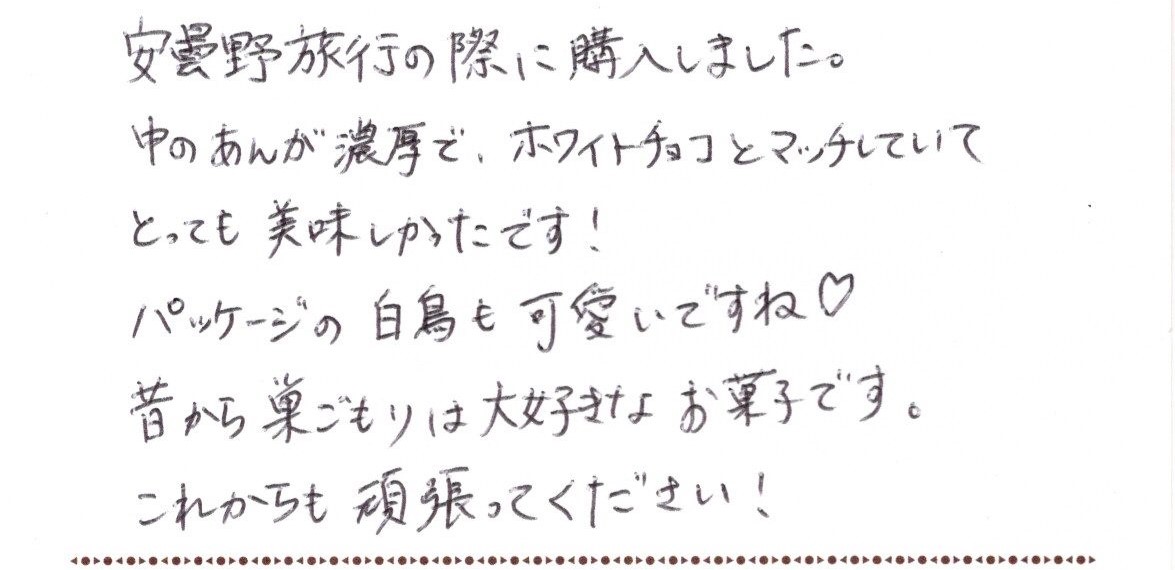 安曇野旅行の際に購入しました。
中のあんが濃厚で、ホワイトチョコとマッチしていて
とっても美味しかったです！
パッケージの白鳥も可愛いですね♡
昔から巣ごもりは大好きなお菓子です。
これからも頑張ってください！